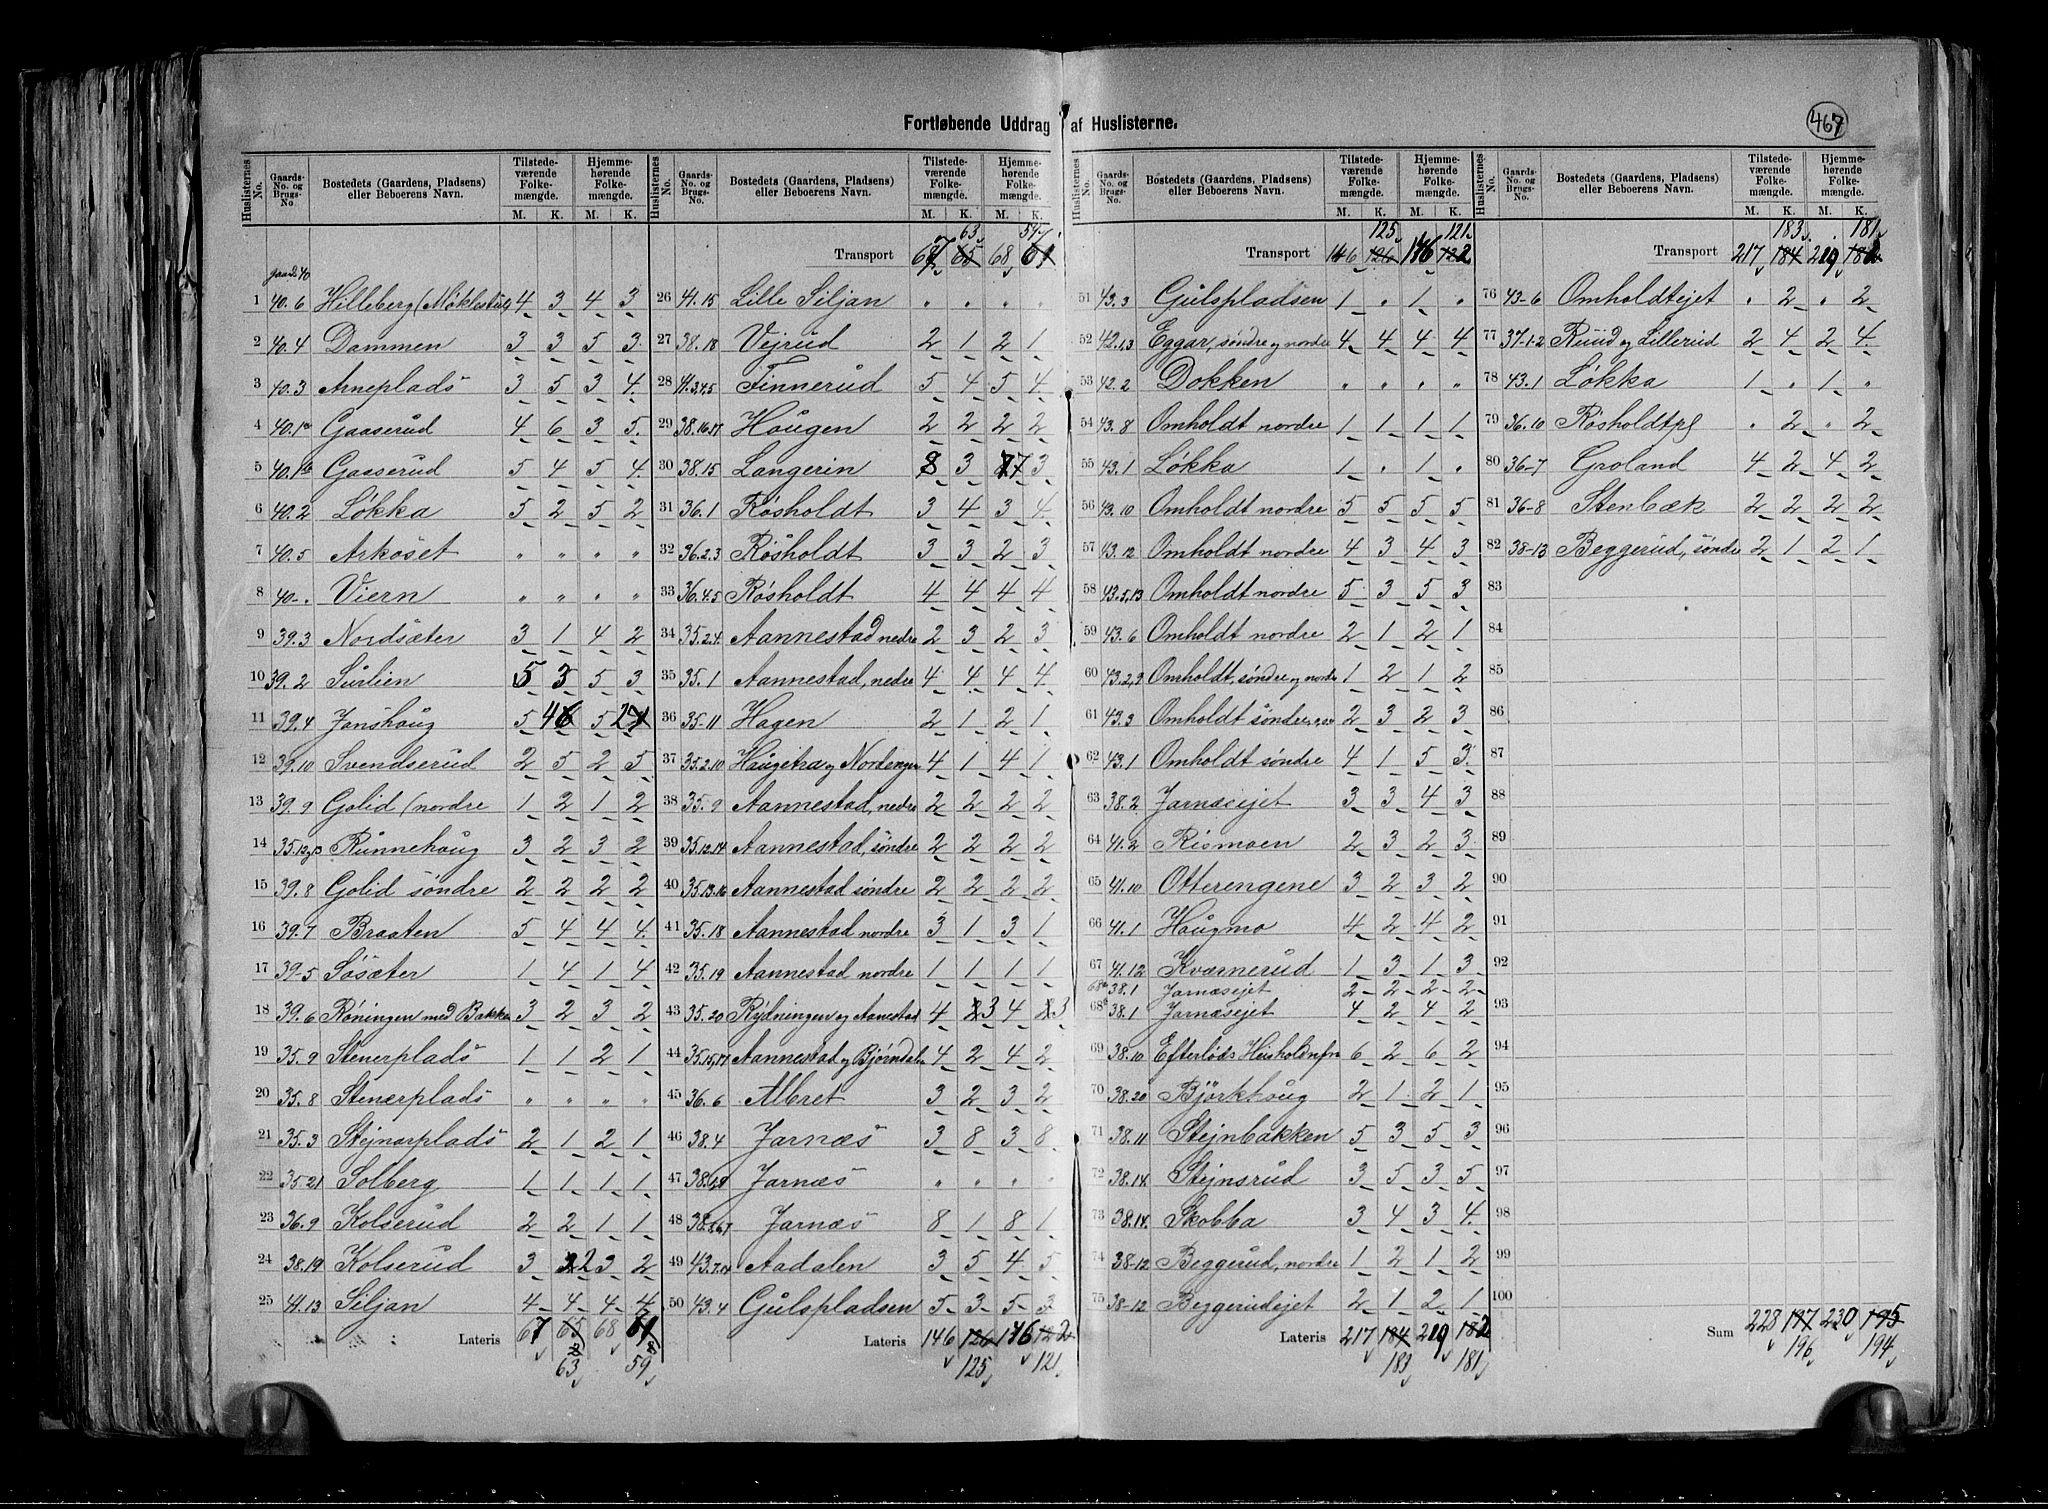 Fortløbende Uddrag af Huslisterne.
467
Huslisternes No. Gaards-No. og Brugs-No Bostedets (Gaardens, Pladsens) eller Beboerens Navn. Tilstedeværende Folkemængde. M. K. Hjemmehørende Folkemængde. M. K.
1 40.6 Hilleberg (Møklestul) 4 3 4 3
2 40.4 Dammen 3 3 5 3
3 40.3 Arneplads 3 5 3 4
4 40.1a Gaaserud 4 6 3 5
5 40.1b Gaaserud 5 4 5 4
6 40.2 Løkka 5 2 5 2
7 40.5 Arkoset " " " "
8 40-. Viern " " " "
9 39.3 Nordsæter 3 1 4 2
10 39.2 Surlien 5 3 5 3
11 39.4 Jonshaug 5 4 5 2
12 39.10 Svendserud 2 5 2 5
13 39.9 Golid (nordre 1 2 1 2
14 35.12,13 Runnehaug 3 2 3 2
15 39.8 Golid søndre 2 2 2 2
16 39.7 Braaten 5 4 4 4
17 39-5 Søsæter 1 4 1 4
18 39.6 Røningen med Bakke 3 2 3 2
19 35.9 Stenerplads 1 1 2 1
20 35.8 Stenerplads " " " "
21 35.3 Stejnarplads 2 1 2 1
22 35.21 Solberg 1 1 1 1
23 36.9 Kolserud 2 2 1 1
24 38.19 Kolserud 3 2 3 2
25 41.13 Siljan 4 4 4 4
Lateris 67 65 68 61
63 59
Huslisternes No. Gaards-No. og Brugs-No. Bostedets (Gaardens, Pladsens) eller Beboerens Navn. Tilstedeværende Folkemængde. M. K. Hjemmehørende Folkemængde. M. K.
63 59
Transport 67 65 68 61
26 41.15 Lille Siljan " " " "
27 38.18 Vejrud 2 1 2 1
28 41.3,4,5 Finnerud 5 4 5 4
29 38.16,17 Haugen 2 2 2 2
30 38.15 Langerin 8 3 7 3
31 36.1 Røsholdt 3 4 3 4
32 36.2.3 Røsholdt 3 3 2 3
33 36.4.5 Røsholdt 4 4 4 4
34 35.2.4 Aannestad nedre 2 3 2 3
35 35.1 Aannestad, nedre 4 4 4 4
36 35-11 Hagen 2 1 2 1
37 35.2.10 Haugeka og Nordengen 4 1 4 1
38 35.9 Aannestad, nedre 2 2 2 2
39 35.12.14 Aannestad, søndre 2 2 2 2
40 35.13.16 Aannestad søndre 2 2 2 2
41 35.18 Aannestad nordre 3 1 3 1
42 35.19 Aannestad nordre 1 1 1 1
43 35.20 Rydningen og Aanestad 4 3 4 3
44 35.15,17 Aannestad og Bjørndalen 4 2 4 2
45 36.6 Albret 3 2 3 2
46 38.4 Jarnæs 3 8 3 8
47 38.1,9 Jarnæs " " " "
48 38.1,6,7 Jarnæs 8 1 8 1
49 43.7,14 Aadalen 3 5 4 5
50 43.4 Gulspladsen 5 3 5 3
Lateris 146 126 146 122
125 121
Huslisternes No. Gaards-No. og Brugs-No. Bostedets (Gaardens, Pladsens) eller Beboerens Navn. Tilstedeværende Folkemængde. M. K. Hjemmehørende Folkemængde. M. K.
125 121
Transport 146 126 146 122
51 43.3 Gulspladsen 1 " 1 "
52 42.1,3 Eggar, søndre og nordre 4 4 4 4
53 42.2 Dokken " " " "
54 43.8 Omholdt nordre 1 1 1 1
55 43.1 Løkka 1 " 1 "
56 43.10 Omholdt nordre 5 5 5 5
57 43.12 Omholdt nordre 4 3 4 3
58 43.5,13 Omholdt nordre 5 3 5 3
59 43.6 Omholdt nordre 2 1 2 1
60 43.2,3 Omholdt, søndre og nordre 1 2 1 2
61 43.3 Omholdt søndre 2 3 2 3
62 43.1 Omholdt søndre 4 1 5 3
63 38.2 Jarnæsejet 3 3 4 3
64 41.2 Rismoen 2 3 2 3
65 41.10 Otterengene 3 2 3 2
66 41.1 Haugmo 4 2 4 2
67 41.12 Kværnerud 1 3 1 3
68a 38.1 Jarnæsejet 2 2 2 2
68b 38.1 Jarnæsejet 4 2 4 2
69 38.10 Efterløds Husholdn 6 2 6 2
70 38.20 Bjørkhaug 2 1 2 1
71 38.11 Stejnbakken 5 3 5 3
72 38.14 Stejnsrud 3 5 3 5
73 38.14 Skobba 3 4 3 4
74 38-12 Beggerud, nordre 1 2 1 2
75 38-12 Beggerudejet 2 1 2 1
Lateris 217 184 219 182
183 181
Huslisternes No. Gaards-No. og Brugs-No. Bostedets (Gaardens, Pladsens) eller Beboerens Navn. Tilstedeværende Folkemængde. M. K. Hjemmehørende Folkemængde. M. K.
183 181
Transport 217 184 219 182
76 43-6 Omholdtejet " 2 " 2
77 37-1.2 Ruud og Lillerud 2 4 2 4
78 43.1 Løkka 1 " 1 "
79 36.10 Røsholdtpl " 2 " 2
80 36-7 Groland 4 2 4 2
81 36-8 Stenbæk 2 2 2 2
82 38-13 Beggerud, søndre 2 1 2 1
83
84
85
86
87
88
89
90
91
92
93
94
95
96
97
98
99
100
Sum 228 197 230 195
196 194